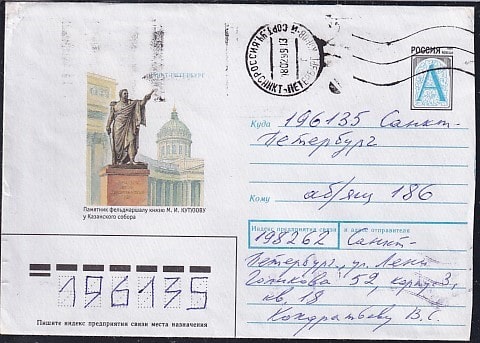 САНКТ-ПЕТЕРБУРГ
РОССИЯ
А
Куда 196135 Санкт-
Петербург
Кому аб/ящ 186
Памятник фельдмаршалу князю М. И. КУТУЗОВУ
у Казанского собора
Индекс предприятия связи и адрес отправителя
198262 Санкт-
Петербург, ул. Лени
Голикова 52, корпус 3,
кв. 18
Кондратьеву В.С.
196135
Пишите индекс предприятия связи места назначения